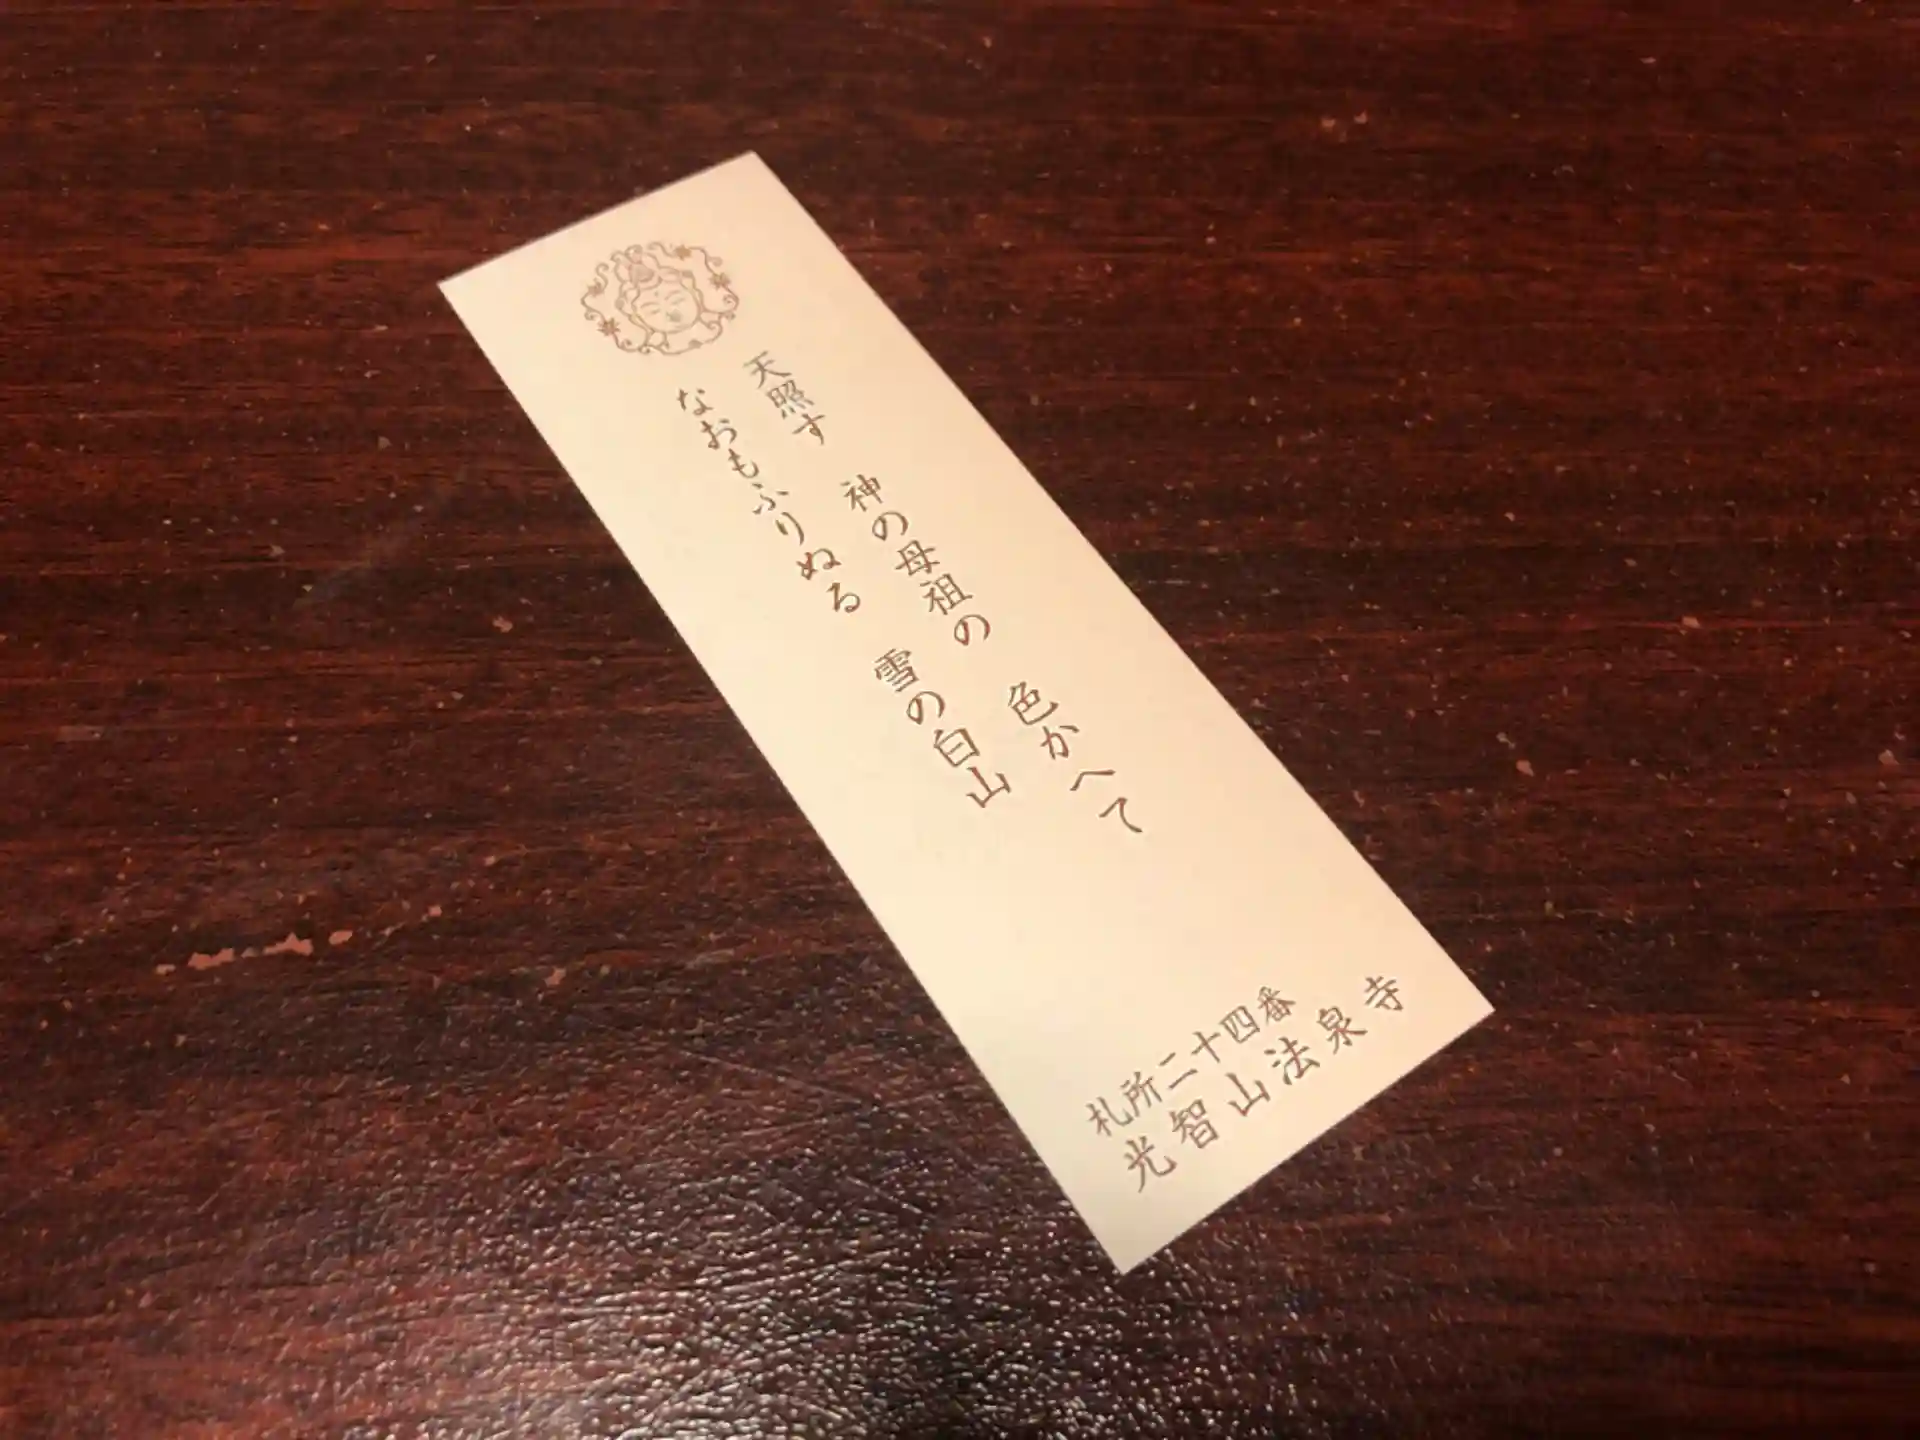 天照す　神の母祖の　色かへて
なおもふりぬる　雪の白山
札所二十四番
光智山法泉寺